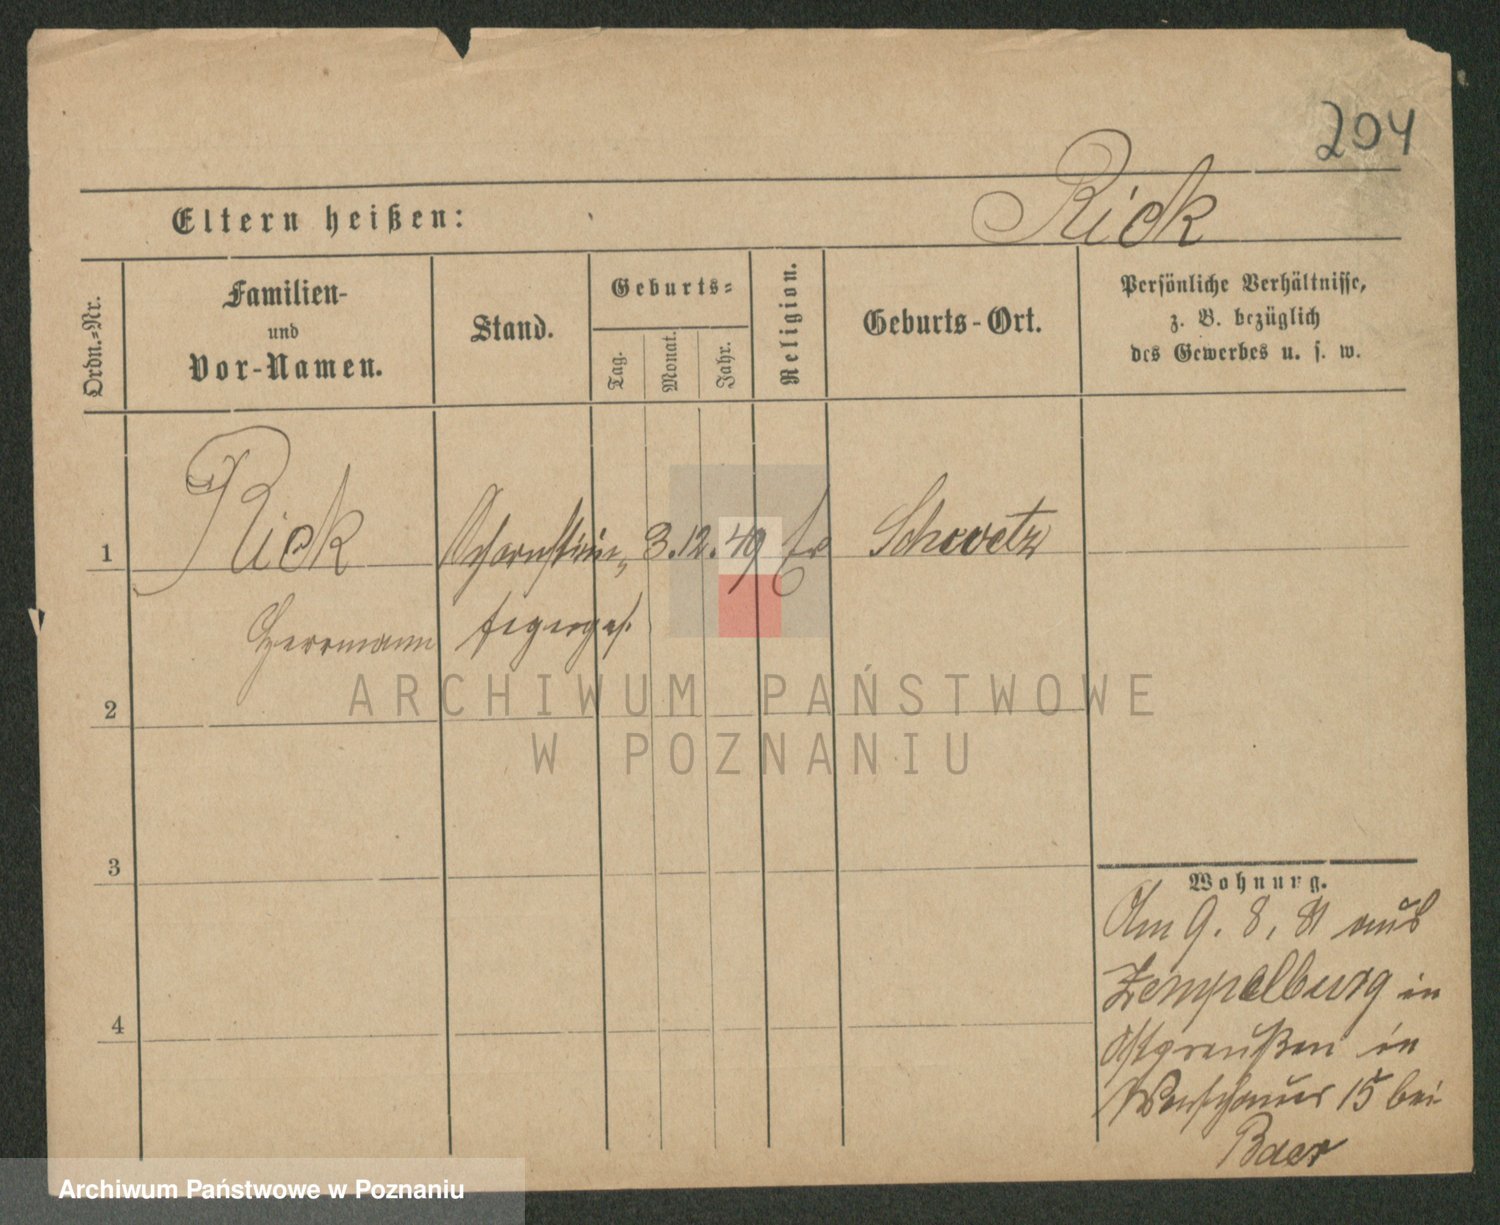 204
Rick
Eltern heißen:
Ordn.-Nr.
Familien-
und
Vor-Namen.
Stand.
Geburts-
Tag.
Monat.
Jahr.
Religion.
Geburts-Ort.
Persönliche Verhältnisse,
z. B. bezüglich
des Gewerbes u. s. w.
1
Rick
Schornstein- 3. 12. 49 Schwetz
Herrmann fegerges.
2
3
4
Wohnung.
Am 9. 8. 81 aus
Zempelburg in
Ostpreußen in
Warschauer 15 bei
Baer
ARCHIWUM PAŃSTWOWE
W POZNANIU
Archiwum Państwowe w Poznaniu